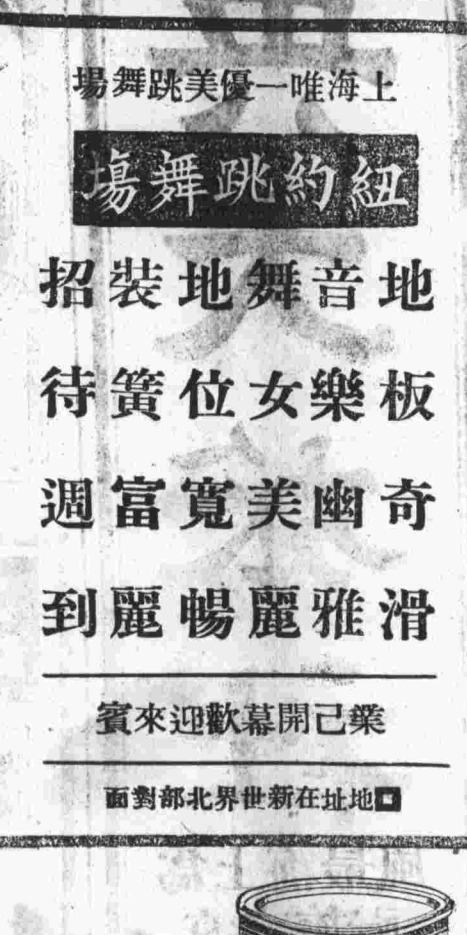 上海唯一優美跳舞場
紐約跳舞塲
地板奇滑
音樂幽雅
舞女美麗
地位寬暢
裝簧富麗
招待週到
業己開幕歡迎來賓
地址在新世界北部對面